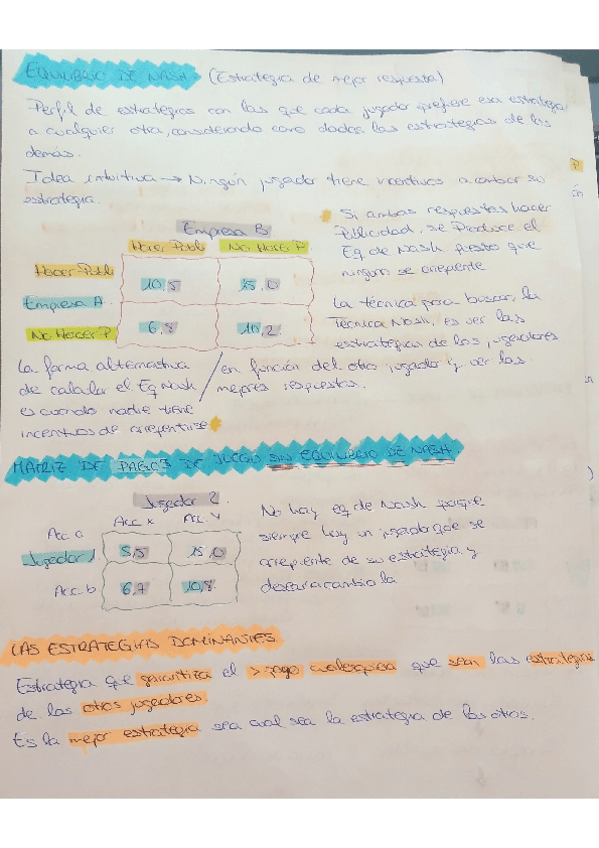 EQUILIBRIO DE NASH (Estrategia de mejor respuesta)
Perfil de estrategias con las que cada jugador prefiere esa estrategia
a cualquier otra, considerando como dadas las estrategias de los
demás.
Idea intuitiva → Ningún jugador tiene incentivos a cambiar su
estrategia.
Empresa B
Hacer Publi No Hacer P.
Hacer Publi 10,5 15,0
Empresa A
No Hacer P 6,8 10,2
Si ambas respuestas hacer
Publicidad, se Produce el
Eq de Nash puesto que
ningun se arrepiente
La técnica para buscar, la
Técnica Nash, es ver las
estrategias de los jugadores
en función del otro jugador y ver las
mejores respuestas.
La forma alternativa
de calcular el Eq Nash
es cuando nadie tiene
incentivos de arrepentirse
MATRIZ DE PAGOS DE JUEGO SIN EQUILIBRIO DE NASH.
Jugador 2.
Acc x Acc. Y
Acc a
Jugador 1 5,5 15,0
Acc. b 6,7 10,8
No hay eq de Nash porque
siempre hay un jugador que se
arrepiente de su estrategia y
LAS ESTRATEGIAS DOMINANTES
Estrategia que garantiza el > pago cualesquiera que sean las estrategias
de los otros jugadores.
Es la mejor estrategia sea cual sea la estrategia de los otros.